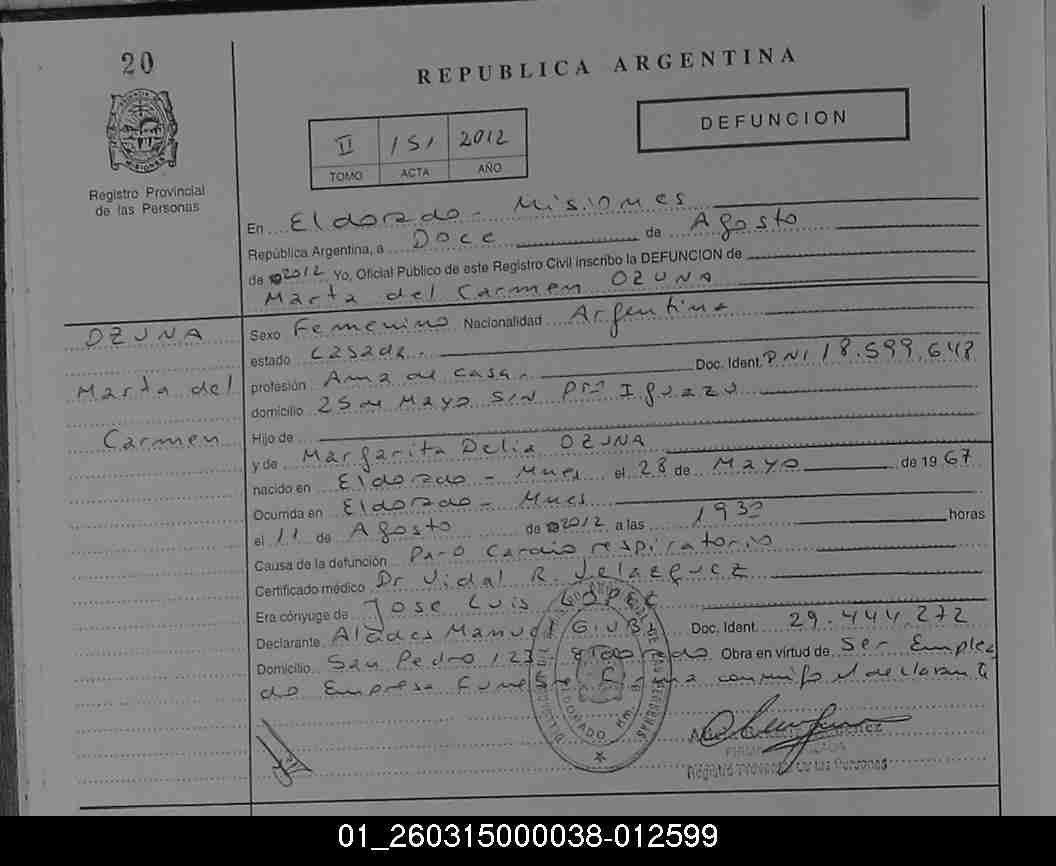 20
REPUBLICA ARGENTINA
DEFUNCION
II 151 2012
TOMO ACTA AÑO
Registro Provincial
de las Personas
En Eldorado - Misiones
República Argentina, a Doce de Agosto
de 2012 Yo, Oficial Público de este Registro Civil inscribo la DEFUNCION de
Marta del Carmen OZUNA
OZUNA
Marta del
Carmen
Sexo Femenino Nacionalidad Argentina
estado casada.
Doc. Ident. DNI 18.599.648
profesión Ama de casa.
domicilio 25 de Mayo S/N Pto Iguazu
Hijo de
y de Margarita Delia OZUNA
nacido en Eldorado - Mnes el 28 de Mayo de 1967
Ocurrida en Eldorado - Mnes
el 11 de Agosto de 2012 a las 1930 horas
Causa de la defunción Paro Cardio respiratorio
Certificado médico Dr Vidal R Velazquez
Era cónyuge de Jose Luis LOPEZ
Declarante Manuel Doc. Ident. 29.444.272
Domicilio San Pedro 123 Eldorado Obra en virtud de Ser Emplea
do Empresa Funebre Firma conmigo el declarante
ELDORADO Km.
Registro Provincial de las Personas
01_260315000038-012599